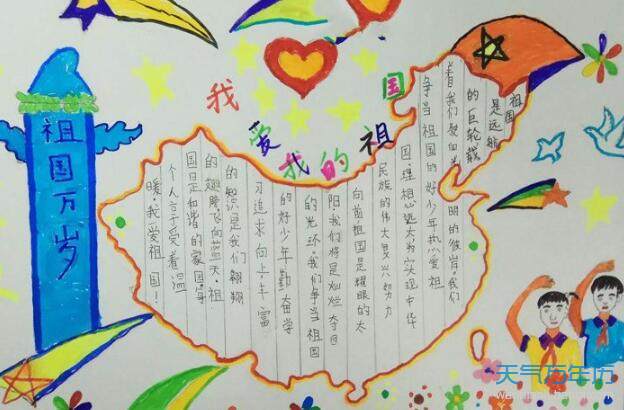 我爱我的祖国
祖国万岁
祖国
是远航
的巨轮载
着我们驶向光
明的彼岸,我们
争当祖国的好少年热爱祖
国,理想远大,为实现中华
民族的伟大复兴努力
向前祖国是耀眼的太
阳我们将是灿烂夺目
的光环,我们争当祖国
的好少年勤奋学
习追求向上丰富
的知识是我们翱翔
的翅膀飞向蓝天,祖
国日正和谐的家园,每
个人享受着温
暖,我爱祖国!
天气万年历